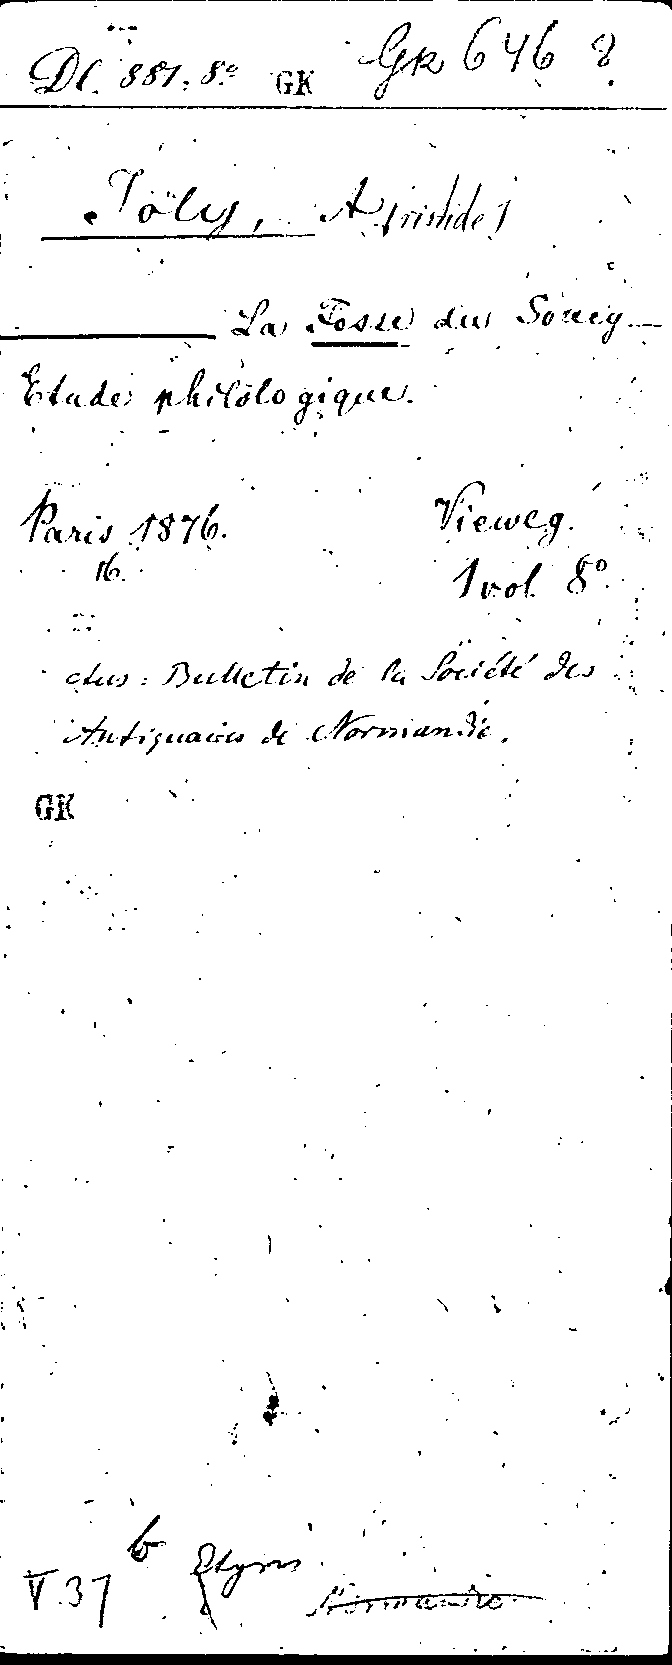 Dl. 881. 8º GK Gk 646 8
Joly, A[ristide]
La Fosse du Soucy
Etude philologique.
Paris 1876. Vieweg.
16. 1 vol. 8º
Aus: Bulletin de la Société des
Antiquaires de Normandie.
GK
b Etym
V.37 Normandie